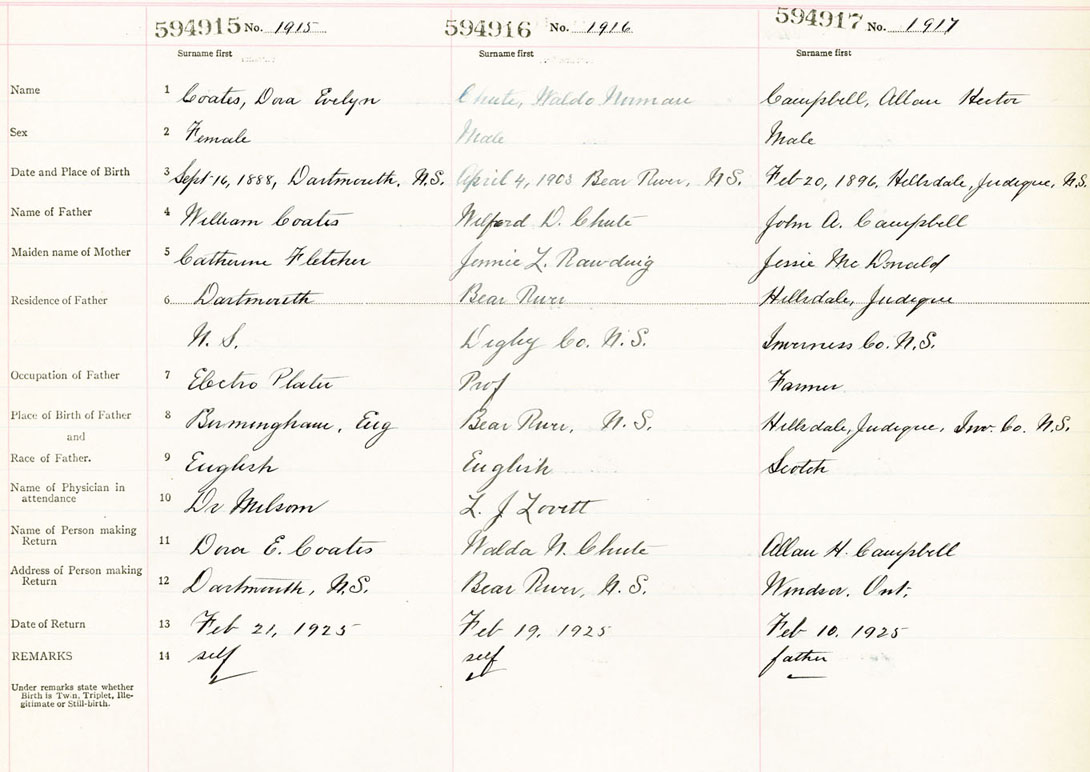 594915 No. 1915 594916 No. 1916 594917 No. 1917
Surname first Surname first Surname first
Name 1 Coates, Dora Evelyn Chute, Waldo Norman Campbell, Allan Hector
Sex 2 Female Male Male
Date and Place of Birth 3 Sept-16, 1888, Dartmouth, N.S. April 4, 1903 Bear River, N.S. Feb-20, 1896, Hillsdale, Judique, N.S.
Name of Father 4 William Coates Wilford D. Chute John A. Campbell
Maiden name of Mother 5 Catherine Fletcher Jennie L. Rawding Jessie McDonald
Residence of Father 6 Dartmouth Bear River Hillsdale, Judique
N. S. Digby Co. N.S. Inverness Co. N.S.
Occupation of Father 7 Electro Plater Prof Farmer
Place of Birth of Father 8 Birmingham, Eng Bear River, N.S. Hillsdale, Judique, Inv. Co. N.S.
and
Race of Father. 9 English English Scotch
Name of Physician in
attendance 10 Dr Milsom L. J Lovitt
Name of Person making
Return 11 Dora E. Coates Walda N. Chute Allan H. Campbell
Address of Person making
Return 12 Dartmouth, N.S. Bear River, N.S. Windsor. Ont.
Date of Return 13 Feb 21, 1925 Feb 19. 1925 Feb 10. 1925
REMARKS 14 self self father
Under remarks state whether
Birth is Twin, Triplet, Ille-
gitimate or Still-birth.